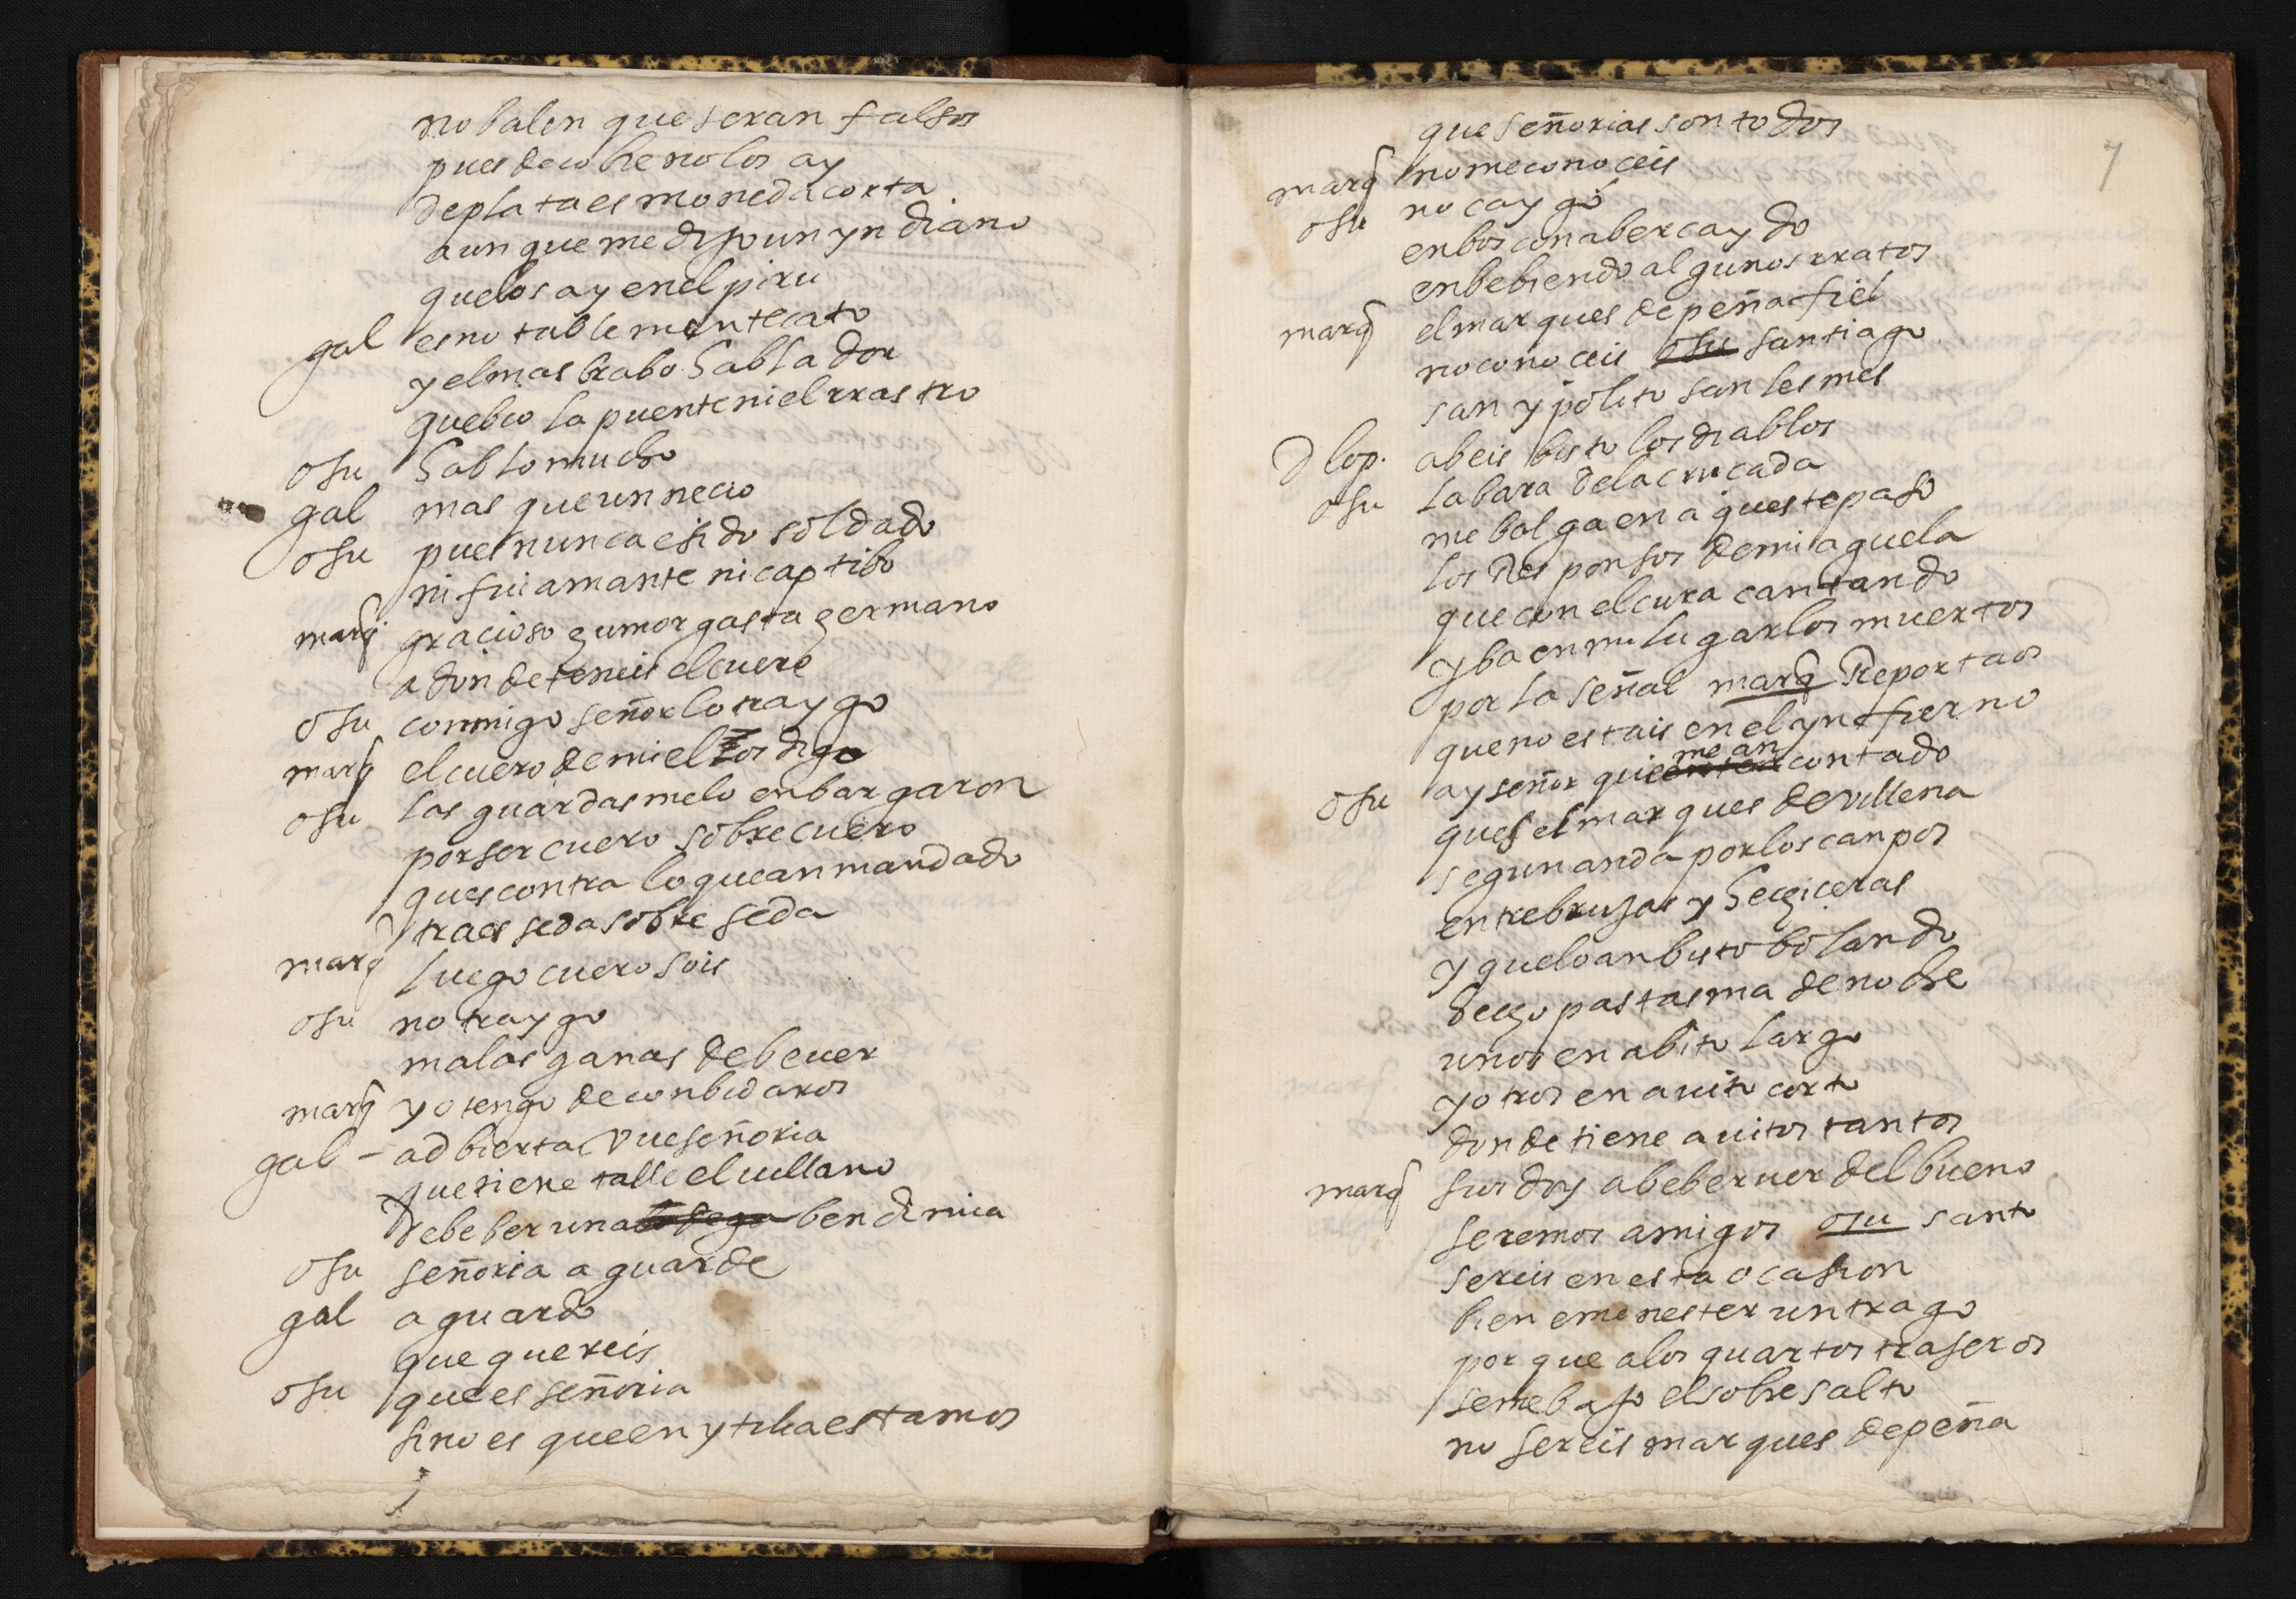 no balen que seran falsos
pues de cobre no los ay
de plata es moneda corta
aunque me dijo un yndiano
que los ay en el piru
gal es notable mentecato
y el mas brabo hablador
que bio la puente ni el rrastro
osu hablo mucho
gal mas que un necio
osu pues nunca e sido soldado
ni fui amante ni captibo
marq gracioso humor gasta hermano
adonde teneis el cuero
osu conmigo señor lo traygo
marq el cuero de miel os digo
osu las guardas me lo enbargaron
por ser cuero sobre cuero
ques contra lo que an mandado
traer seda sobre seda
marq luego cuero sois
osu no traygo
malas ganas de bever
marq yo tengo de conbidaros
gal - adbierta vueseñoria
que tiene talle el villano
de beber una bendimia
osu señoria aguarde
gal aguardo
que quereis
osu que es señoria
sino es que en ytalia estamos
7
que señorias son todos
marq no me conoceis
osu no caygo
en bos con aber caydo
en bebiendo algunos rratos
marq el marques de peñafiel
no conoceis osu santiago
san ypolito san lesmes
D lop. abeis bisto los diablos
osu la bara de la crucada
me balga en aqueste paso
los Responsos de mi aguela
que con el cura cantando
yba en mi lugar los muertos
por la señal marq Reportaos
que no estais en el ynfierno
osu ay señor que me an contado
ques el marques de villena
segun anda por los canpos
entre brujas y hechiceras
y que lo an bisto bolando
hecho pastasma de noche
unos en abito largo
y otros en avito corto
donde tiene avitos tantos
marq si os doy a beber uer del bueno
seremos amigos osu santo
sereis en esta ocasion
bien e menester un trago
porque a los quartos traseros
se me bajo el sobresalto
no sereis marques de peña